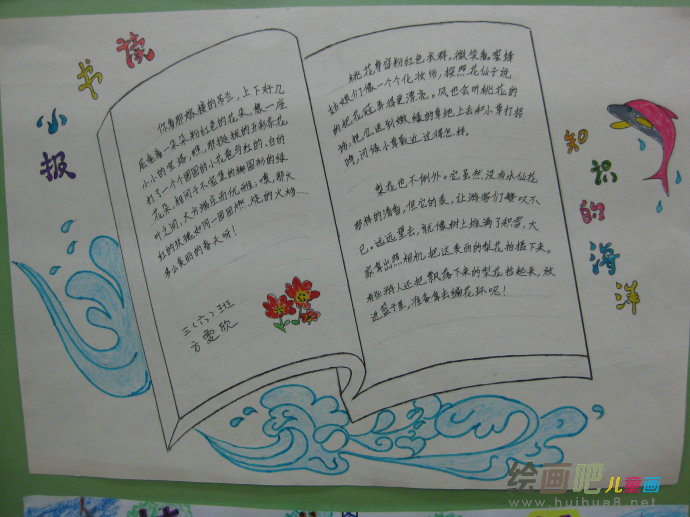 读书小报
你看那嫩绿的吊兰,上下好几
层垂着一朵朵粉红色的花朵,像一座
小小的宝塔,瞧,那挺拔的五彩茶花
打了一个个圆的小花苞勾红的,白的
花朵,相间于不密集的椭圆形的绿
叶之间,大方端庄而优雅,噢,那火
红的玫瑰如同一团团燃烧的火焰……
多么美丽的春天呀!
三(六)班
方雯欣
桃花身穿粉红色衣群,微笑着,蜜蜂
姑娘们像一个个化妆师,按照花仙子说
的把花冠弄得更漂亮。风也会听桃花的
话,把它送到嫩绿的草地上去和小草打招
呼,问候小草最近过得怎样。
梨花也不例外。它虽然没有水仙花
那样的清香,但它的美,让游客们赞叹不
已。远远望去,就像树上堆满了积雪,大
家拿出照相机把这美丽的梨花拍摄下来。
有些游人还把飘落下来的梨花拾起来,放
进篮子里,准备拿去编花环呢!
知识的海洋
绘画吧儿童画
www.huihua8.net